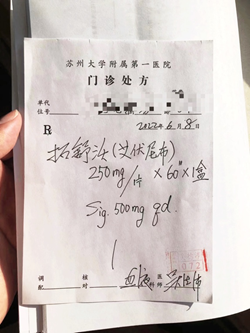 苏州大学附属第一医院
门诊处方
单代
位号
2022年6月8日
R
拓舒沃(艾伏尼布)
250mg/片 × 60# × 1盒
Sig. 500mg qd.
调配
核对
血液科
医师